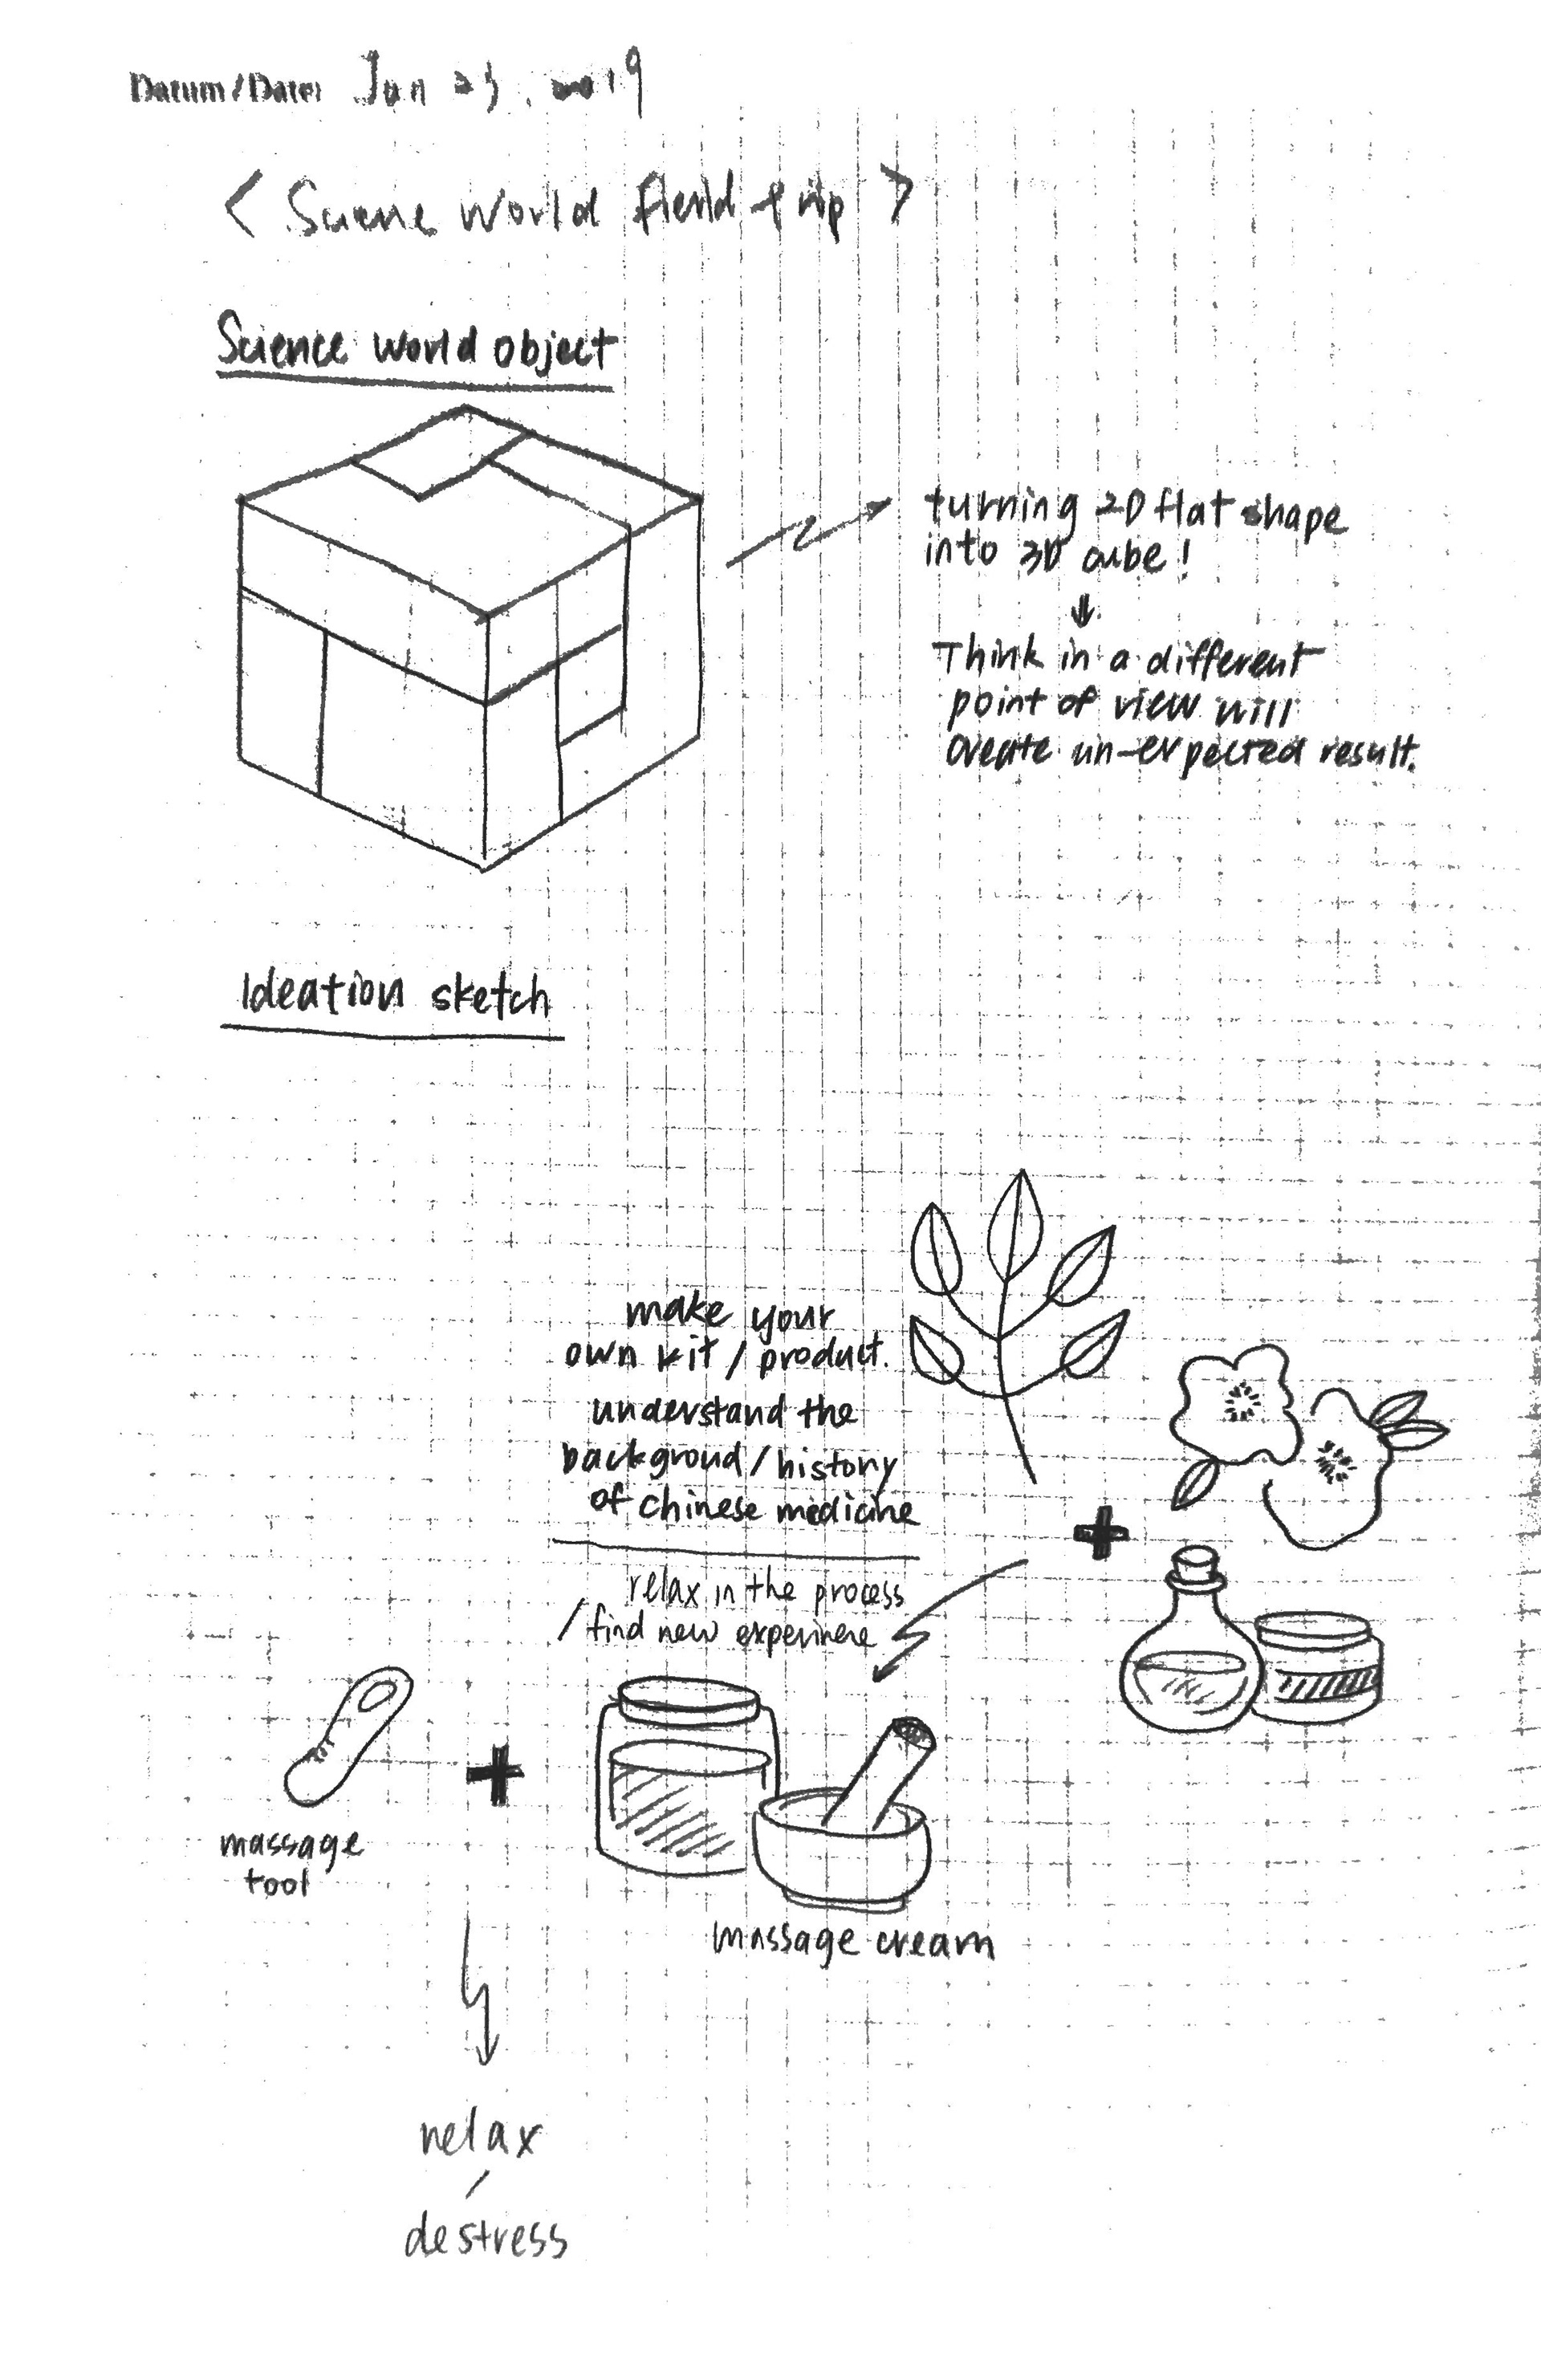 Datum/Date: Jan 23, 2019
< Sciene World field trip >
Science world object
turning 2D flat shape
into 3D cube!
Think in a different
point of view will
create un-expected result.
Ideation sketch
make your
own kit / product.
understand the
backgroud / history
of chinese medicine
relax in the process
/ find new experinene
massage
tool
massage cream
relax
/
destress